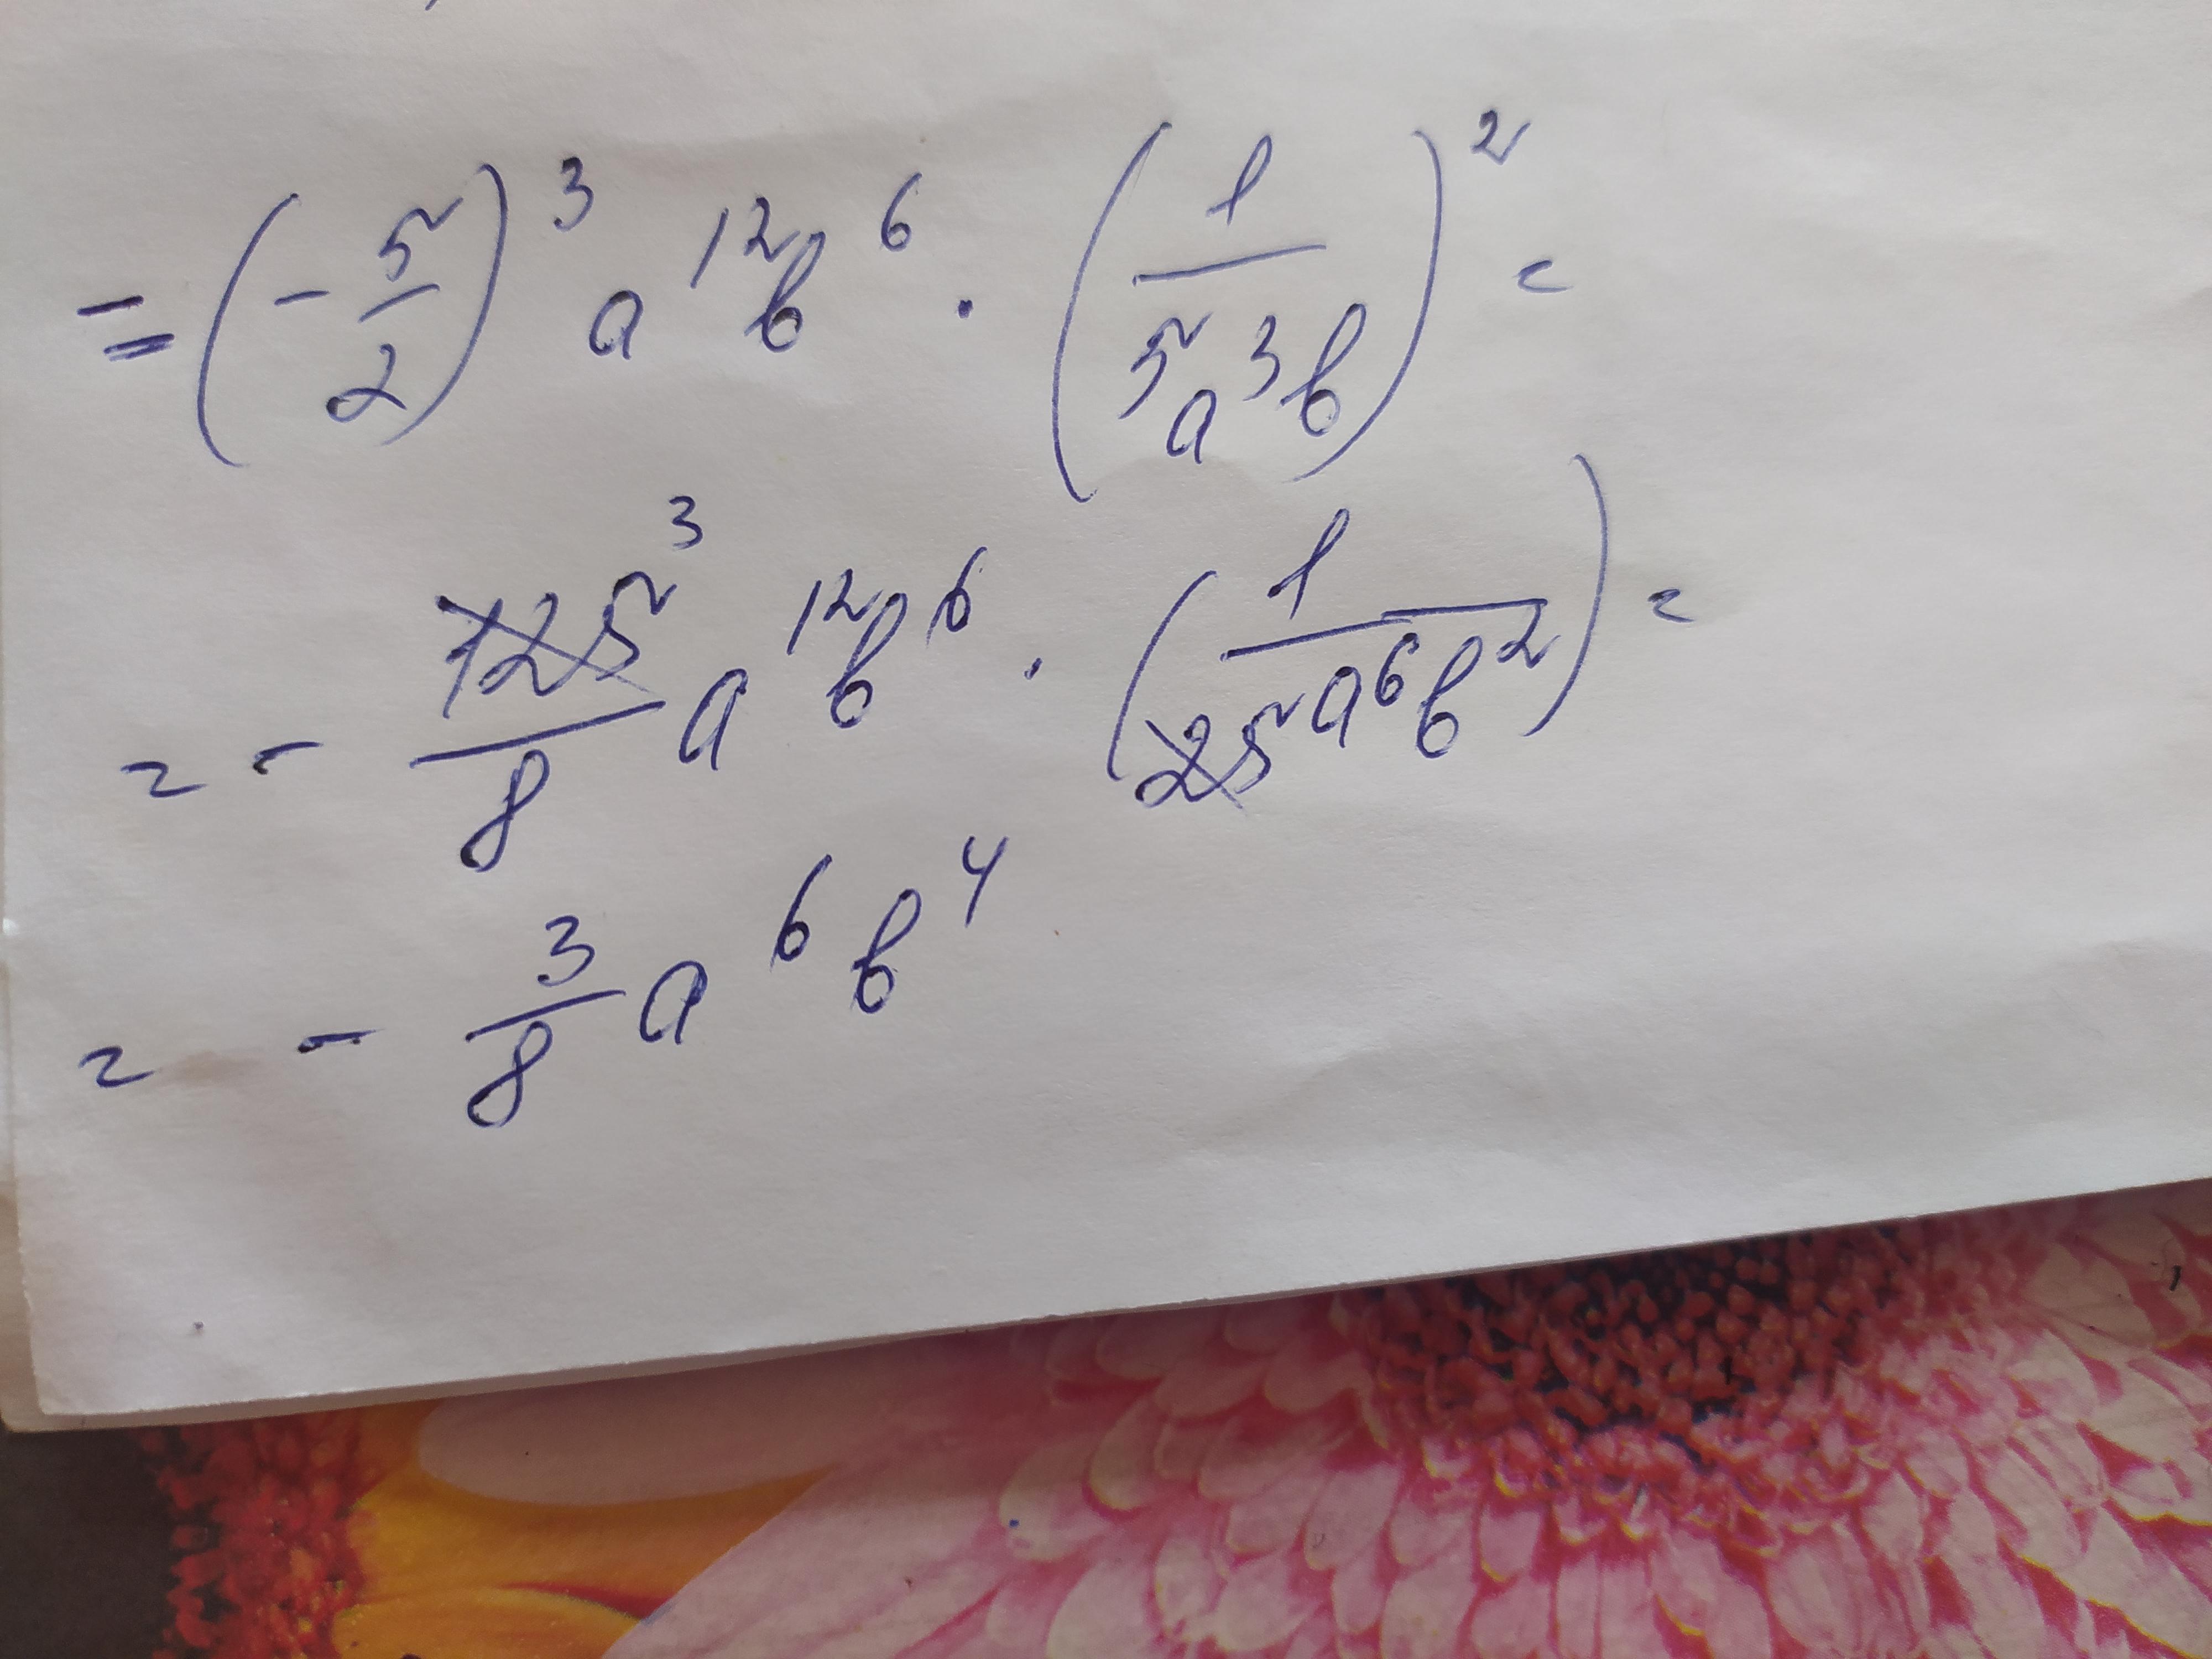 = (-5/2)³ a¹²b⁶ · (1/5a³b)² =
= - 125/8 ³ a¹²b⁶ · (1/25a⁶b²) =
= - 3/8 a⁶b⁴